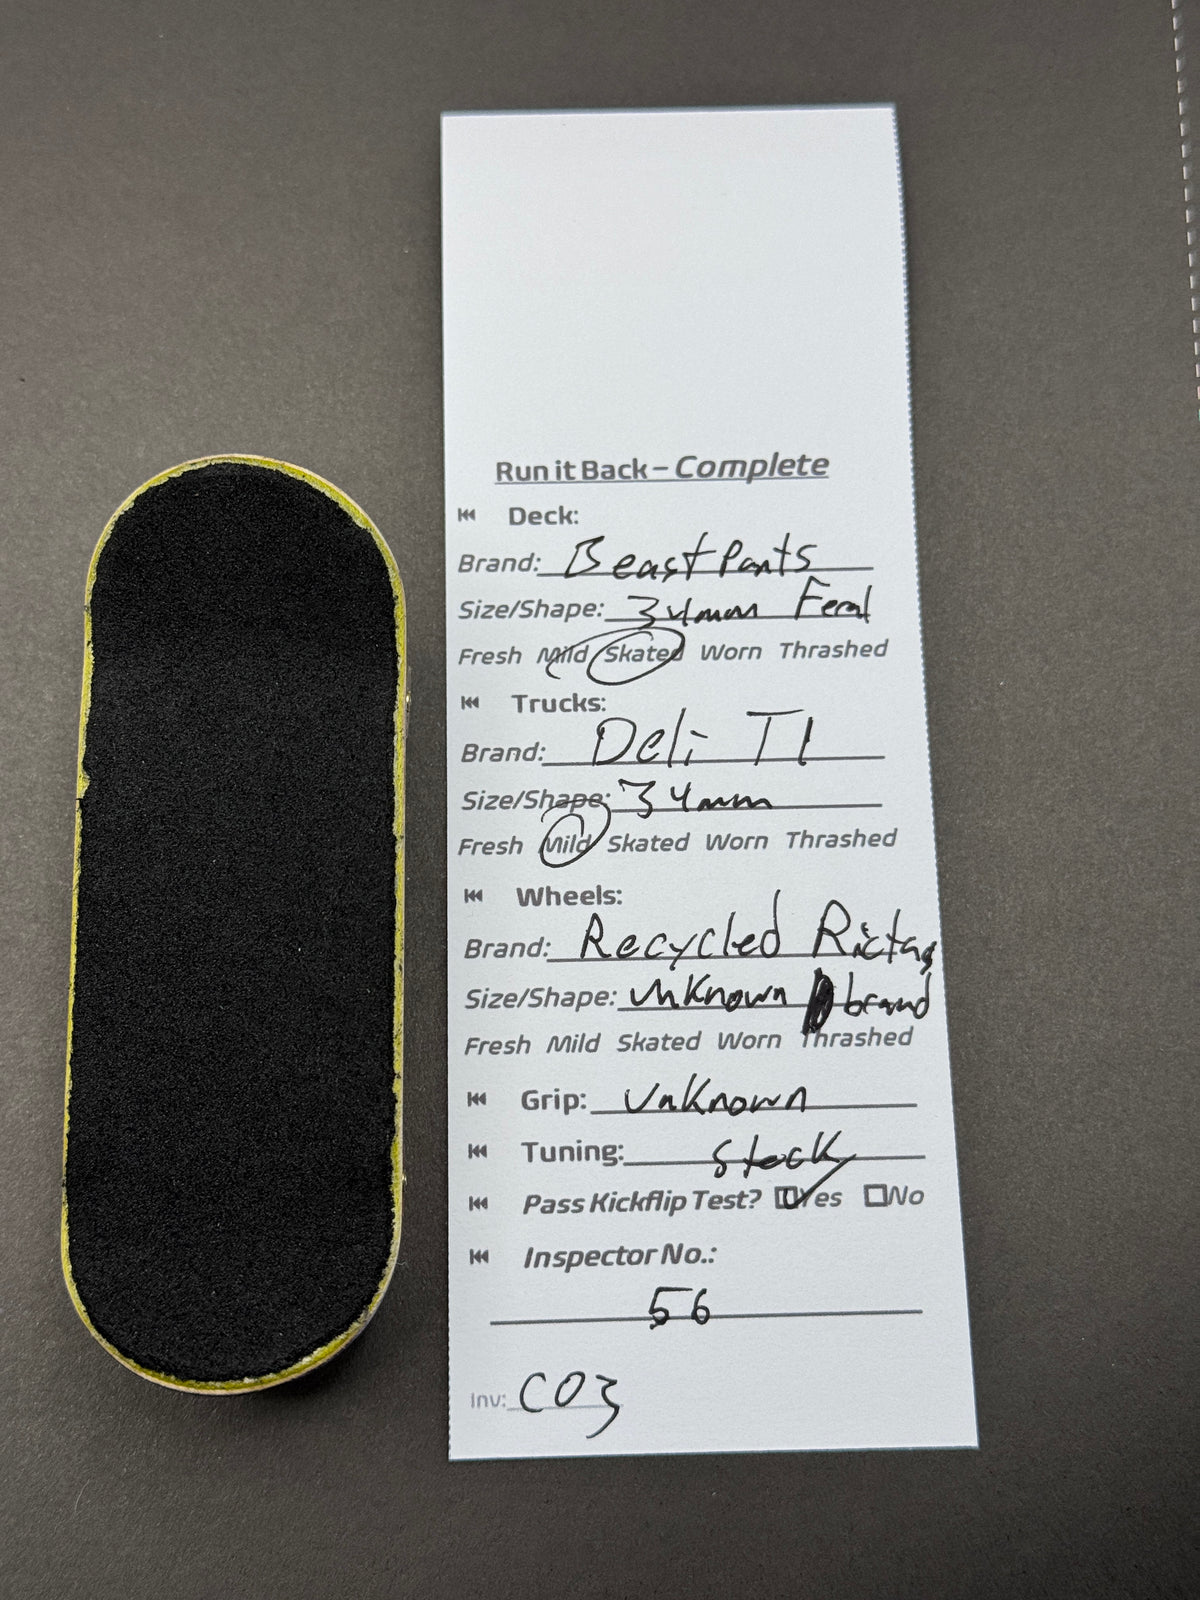 Run it Back – Complete
Deck:
Brand: Beast Pants
Size/Shape: 34mm Feral
Fresh Mild Skated Worn Thrashed
Trucks:
Brand: Deli T1
Size/Shape: 34mm
Fresh Mild Skated Worn Thrashed
Wheels:
Brand: Recycled
Size/Shape: Unknown brand
Fresh Mild Skated Worn Thrashed
Grip: Unknown
Tuning: Stock
Pass Kickflip Test? Yes No
Inspector No.:
56
Inv: C03